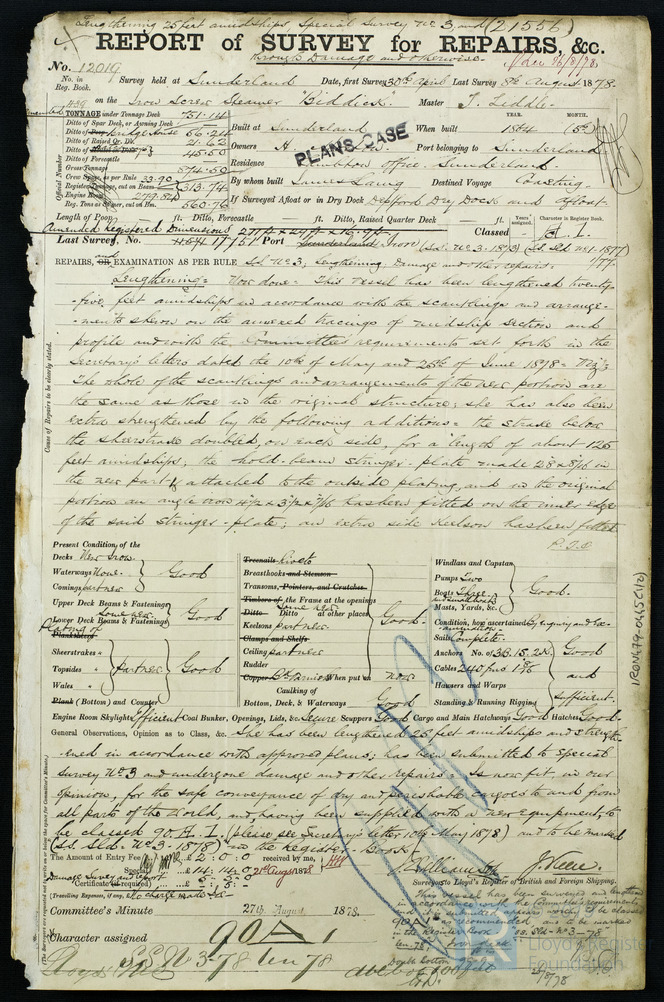 Lengthening 25 feet amidships Special Survey No 3 and (21556)
REPORT of SURVEY for REPAIRS, &c.
through Damage and otherwise.
No. 12019
No. in Reg. Book.
Survey held at Sunderland Date, first Survey 30th April Last Survey 8th August 1878.
on the Iron Screw Steamer "Biddick" Master T. Liddle
TONNAGE under Tonnage Deck 751.14
Ditto of Spar Deck, or Awning Deck
Ditto of Bridge House 56.24
Ditto of Raised Qr. Dk. 21.62
45.50
Ditto of Forecastle
Gross Tonnage 874.50
Crew Space, as per Rule 33.90
Registered Tonnage, cut on Beam 313.74
Engine Room 279.84
Reg. Tons as Owner, cut on Hm. 560.76
Official Number
Built at Sunderland When built 1864 (5)
YEAR. MONTH.
Owners H Port belonging to Sunderland
PLANS CASE
Residence office, Sunderland.
By whom built James Laing Destined Voyage Coasting.
If Surveyed Afloat or in Dry Dock Deptford Dry Dock and afloat.
Length of Poop ft. Ditto, Forecastle ft. Ditto, Raised Quarter Deck ft.
Years assigned. Character in Register Book.
Amended Registered Dimensions
Classed A.1.
Last Survey, No. 17151 Port Sunderland Iron (S.S. No 3-1873) (S.S. Sld. No 1-1877)
REPAIRS, and OR EXAMINATION AS PER RULE S.S. No 3, Lengthening, Damage and other repairs:
Lengthening:- Now done: This vessel has been lengthened twenty-
-five feet amidships in accordance with the scantlings and arrange-
-ments shewn on the annexed tracings of midship section and
profile and with the Committee's requirements set forth in the
Secretary's letters dated the 10th of May and 25th of June 1878:
The whole of the scantlings and arrangements of the new portion are
the same as those in the original structure; she has also been
extra strengthened by the following additions: the strake below
the sheerstrake doubled, on each side, for a length of about 125
feet amidships, the hold-beam stringer-plate made 28 x 8/16 in
the new part & attached to the outside plating, and in the original
portion an angle iron 4½ x 3½ x 7/16 has been fitted on the inner edge
of the said stringer-plate; an extra side keelson has been fitted
P.T.O
Cause of Repairs to be clearly stated.
Present Condition, of the
Decks New Iron
Waterways None.
Comings part new
Good
Upper Deck Beams & Fastenings
Lower Deck Beams & Fastenings
Good
Plankshears
Sheerstrakes "
Topsides "
Wales "
Part new
Good
Plank (Bottom) and Counter
Treenails Rivets
Breasthooks and Stemson
Transoms, Pointers, and Crutches
Timbers of the Frame at the openings
Ditto Ditto at other places
Some new
Keelsons part new
Clamps and Shelfs
Ceiling part new
Rudder
Good.
Copper When put on now
Caulking of
Bottom, Deck, & Waterways Good
Windlass and Capstan
Pumps Two
Boats Three
Masts, Yards, &c.
Good.
Condition, how ascertained By enquiry and ex-
-amination.
Sails Complete.
Anchors No. of 3B.1S.2K.
Cables 240 fms 1 9/16
Hawsers and Warps
Standing & Running Rigging
Good
and
sufficient.
Engine Room Skylights Efficient Coal Bunker, Openings, Lids, &c. Secure Scuppers Good Cargo and Main Hatchways Good Hatches Good.
General Observations, Opinion as to Class, &c. She has been lengthened 25 feet amidships and strength-
-ened in accordance with approved plans; has been submitted to special
survey No 3 and undergone damage and other repairs: Is now fit, in our
opinion, for the safe conveyance of dry and perishable cargoes to and from
all parts of the World, and having been supplied with a new equipment, to
be classed 90.A.1. (please see Secretary's letter 10th May 1878) and to be marked
(S.S. Sld. No 3-1878) in the Register Book.
The Amount of Entry Fee £ 2:0:0 received by me,
Special £ 14:14:0 21st Augst 1878
Damage Survey and report
Certificate (if required)
(Travelling Expenses, if any)
J. Williamson J. Steele.
Surveyors to Lloyd's Register of British and Foreign Shipping.
Committee's Minute 27th August 1878.
Character assigned 90 A 1
S.S. No 3-78 Len 78
This vessel has been surveyed and lengthened
in accordance with the Committee's requirements
IRON479-0445C(12)
Lloyd's Register
Foundation